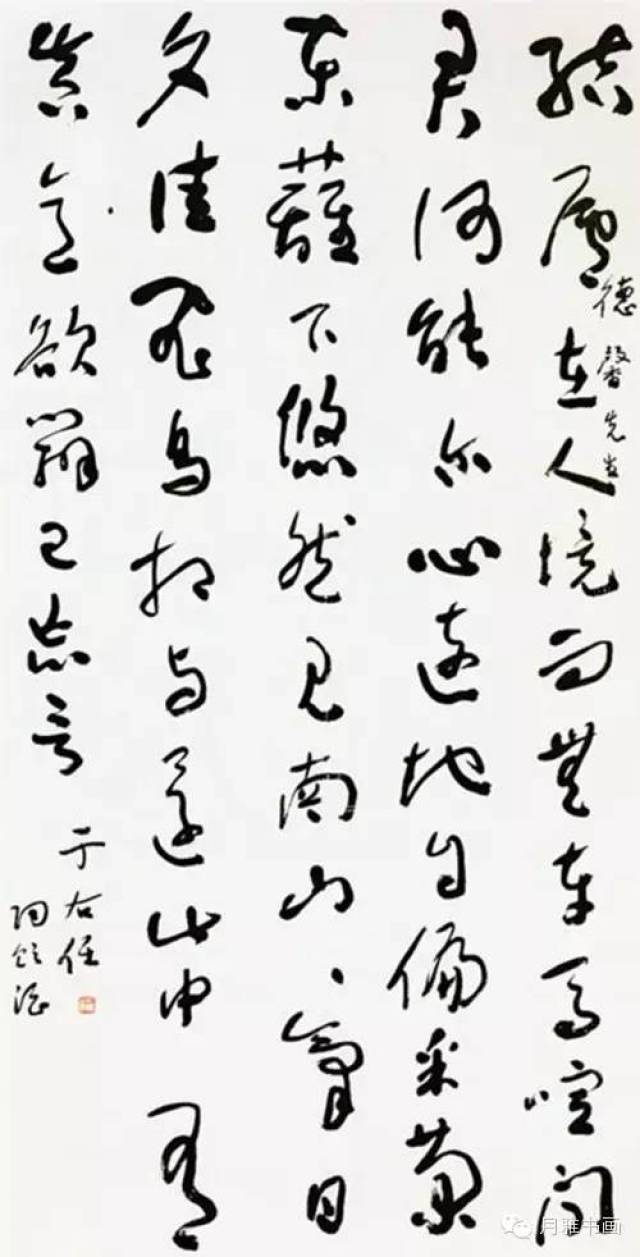 結廬在人境而無車馬喧問
德馨先生
君何能尔心遠地自偏采菊
東籬下悠然見南山、氣日
夕佳飛鳥相与還此中有
真意欲辨已忘言
于右任
陶飲酒
月雅书画